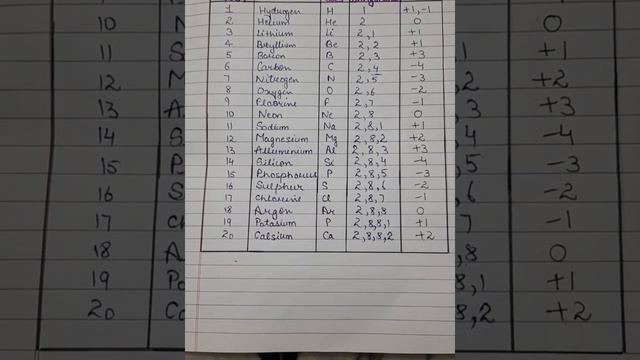 1 Hydrogen H +1,-1
2 Helium He 2 0
3 Lithium Li 2,1 +1
4 Beryllium Be 2,2 +1
5 Boron B 2,3 +3
6 Carbon C 2,4 -4
7 Nitrogen N 2,5 -3
8 Oxygen O 2,6 -2
9 Fluorine F 2,7 -1
10 Neon Ne 2,8 0
11 Sodium Na 2,8,1 +1
12 Magnesium Mg 2,8,2 +2
13 Alluminium Al 2,8,3 +3
14 Silicon Si 2,8,4 -4
15 Phosphorus P 2,8,5 -3
16 Sulphur S 2,8,6 -2
17 Chlorine Cl 2,8,7 -1
18 Argon Ar 2,8,8 0
19 Potasium P 2,8,8,1 +1
20 Calsium Ca 2,8,8,2 +2